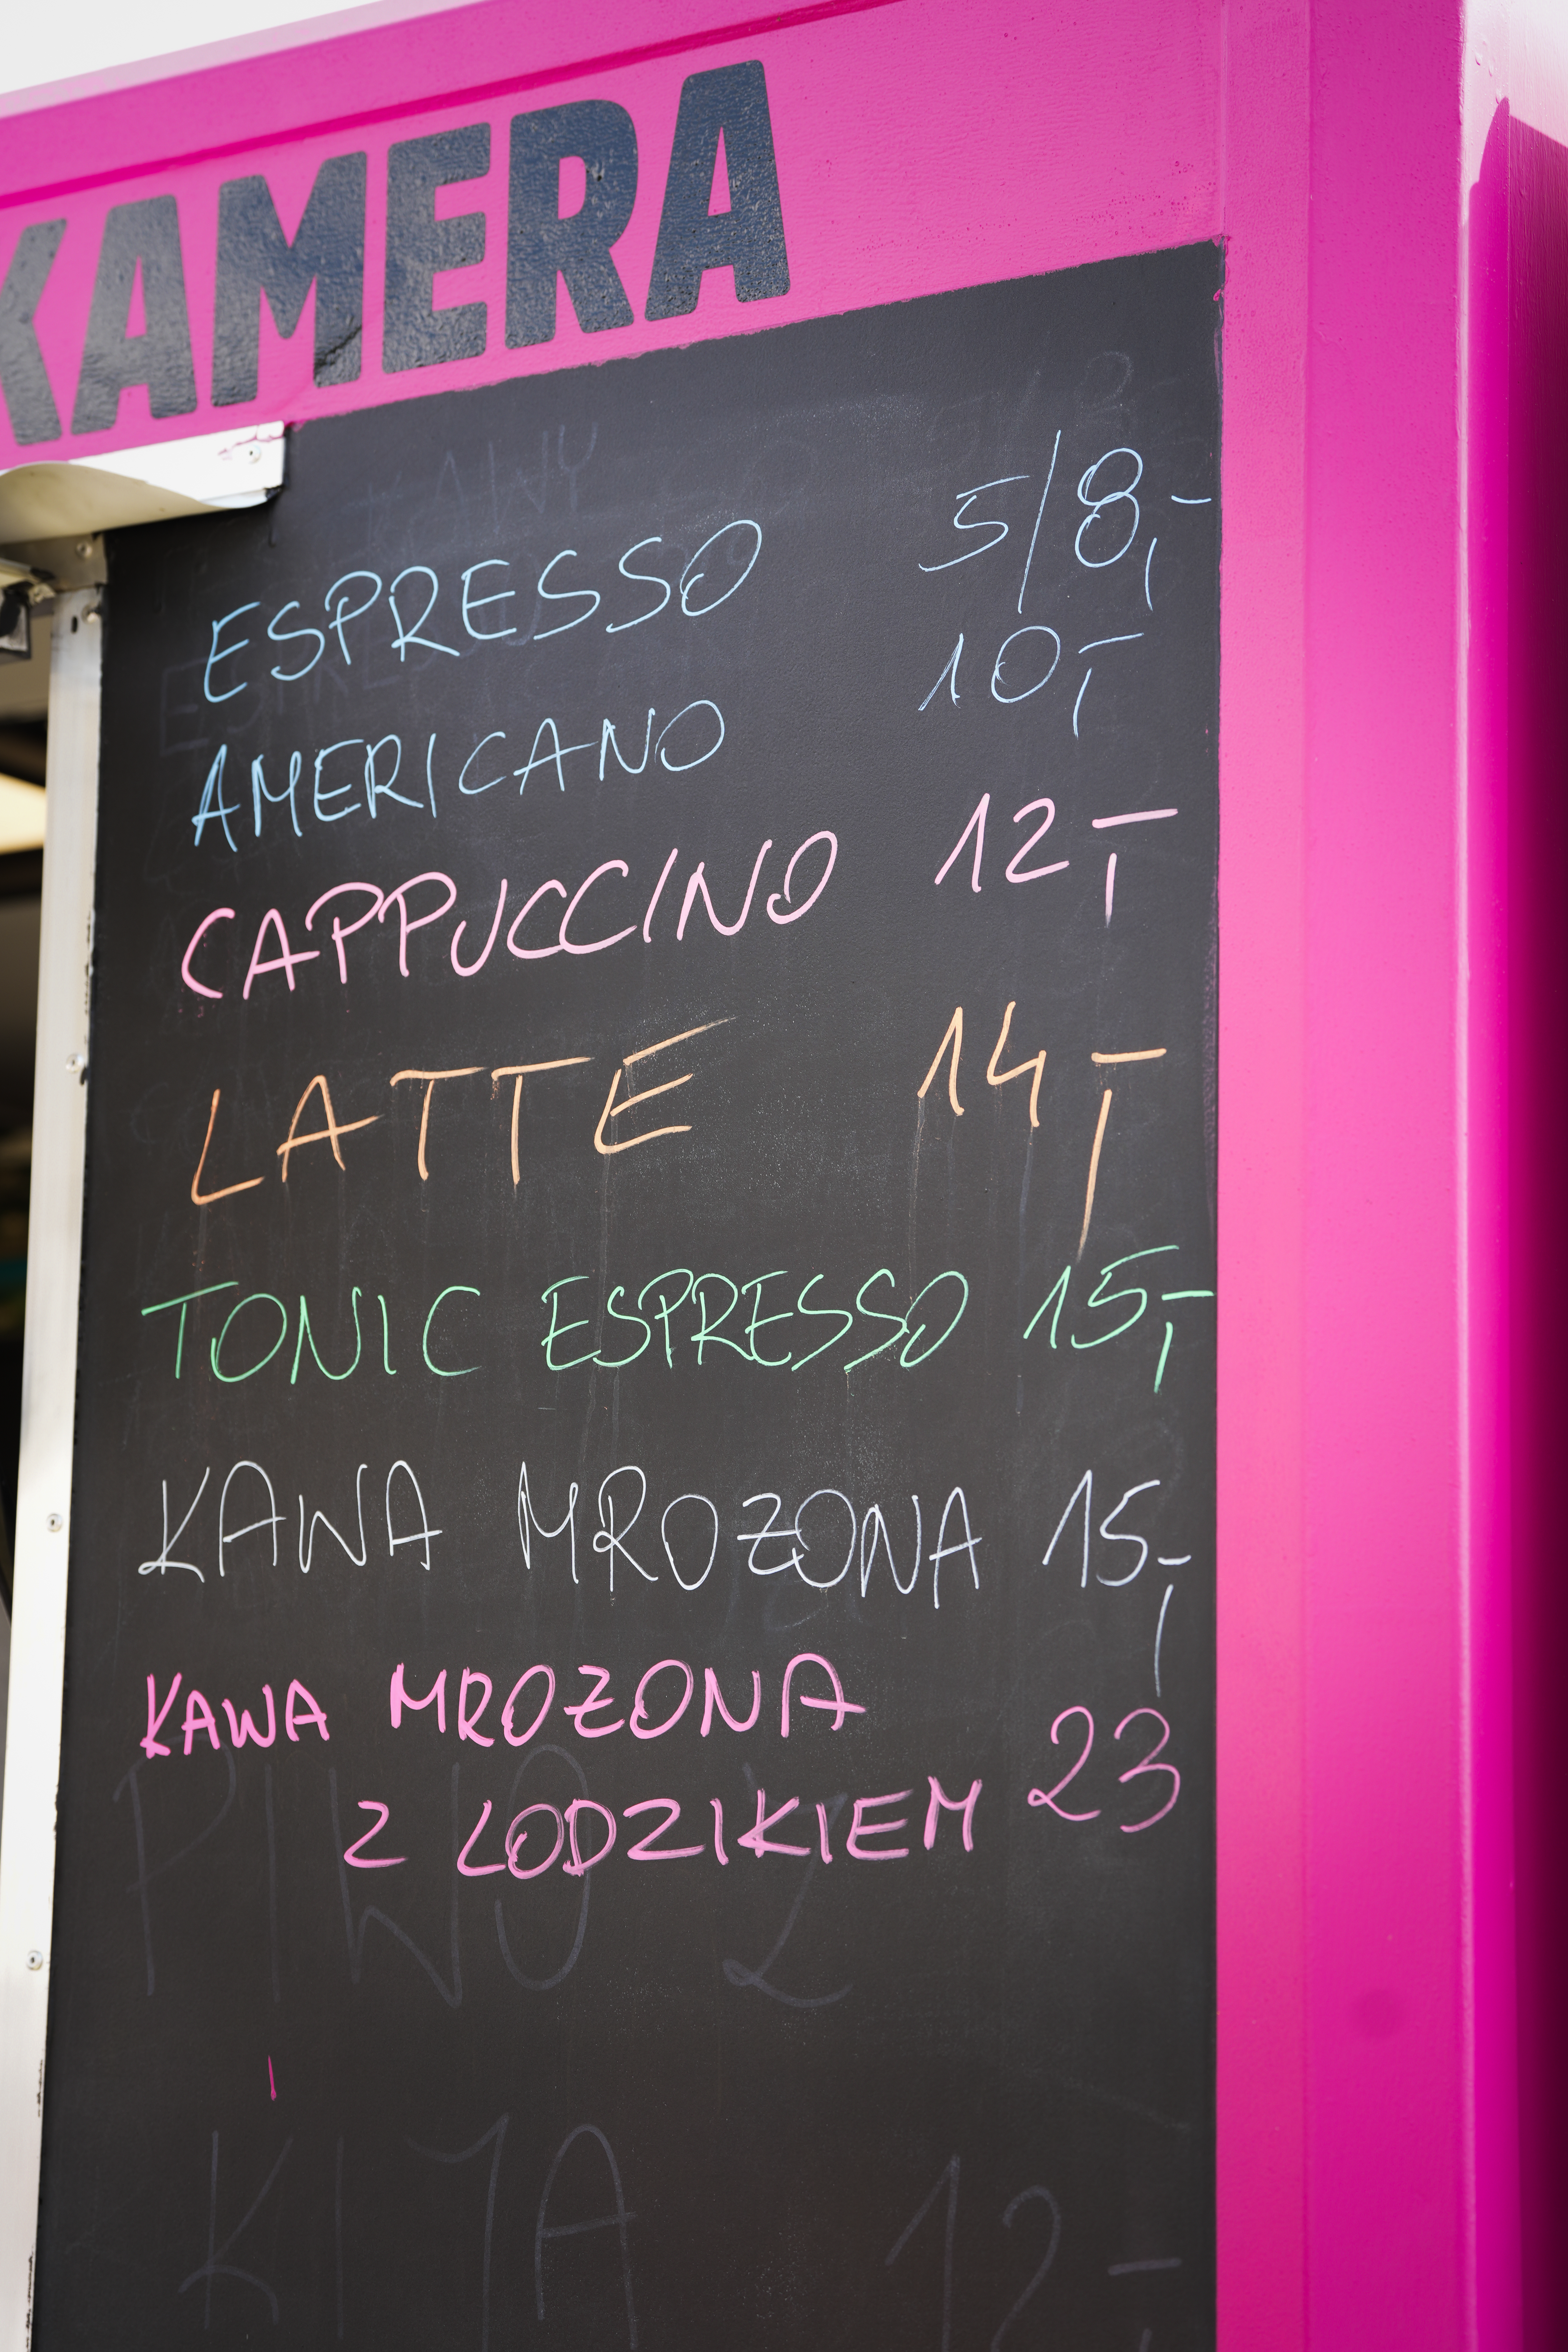 KAMERA
ESPRESSO 5/8,-
AMERICANO 10,-
CAPPUCCINO 12,-
LATTE 14,-
TONIC ESPRESSO 15,-
KAWA MROŻONA 15,-
KAWA MROŻONA
Z LODZIKIEM 23
PIWO Z
KIJA 12,-